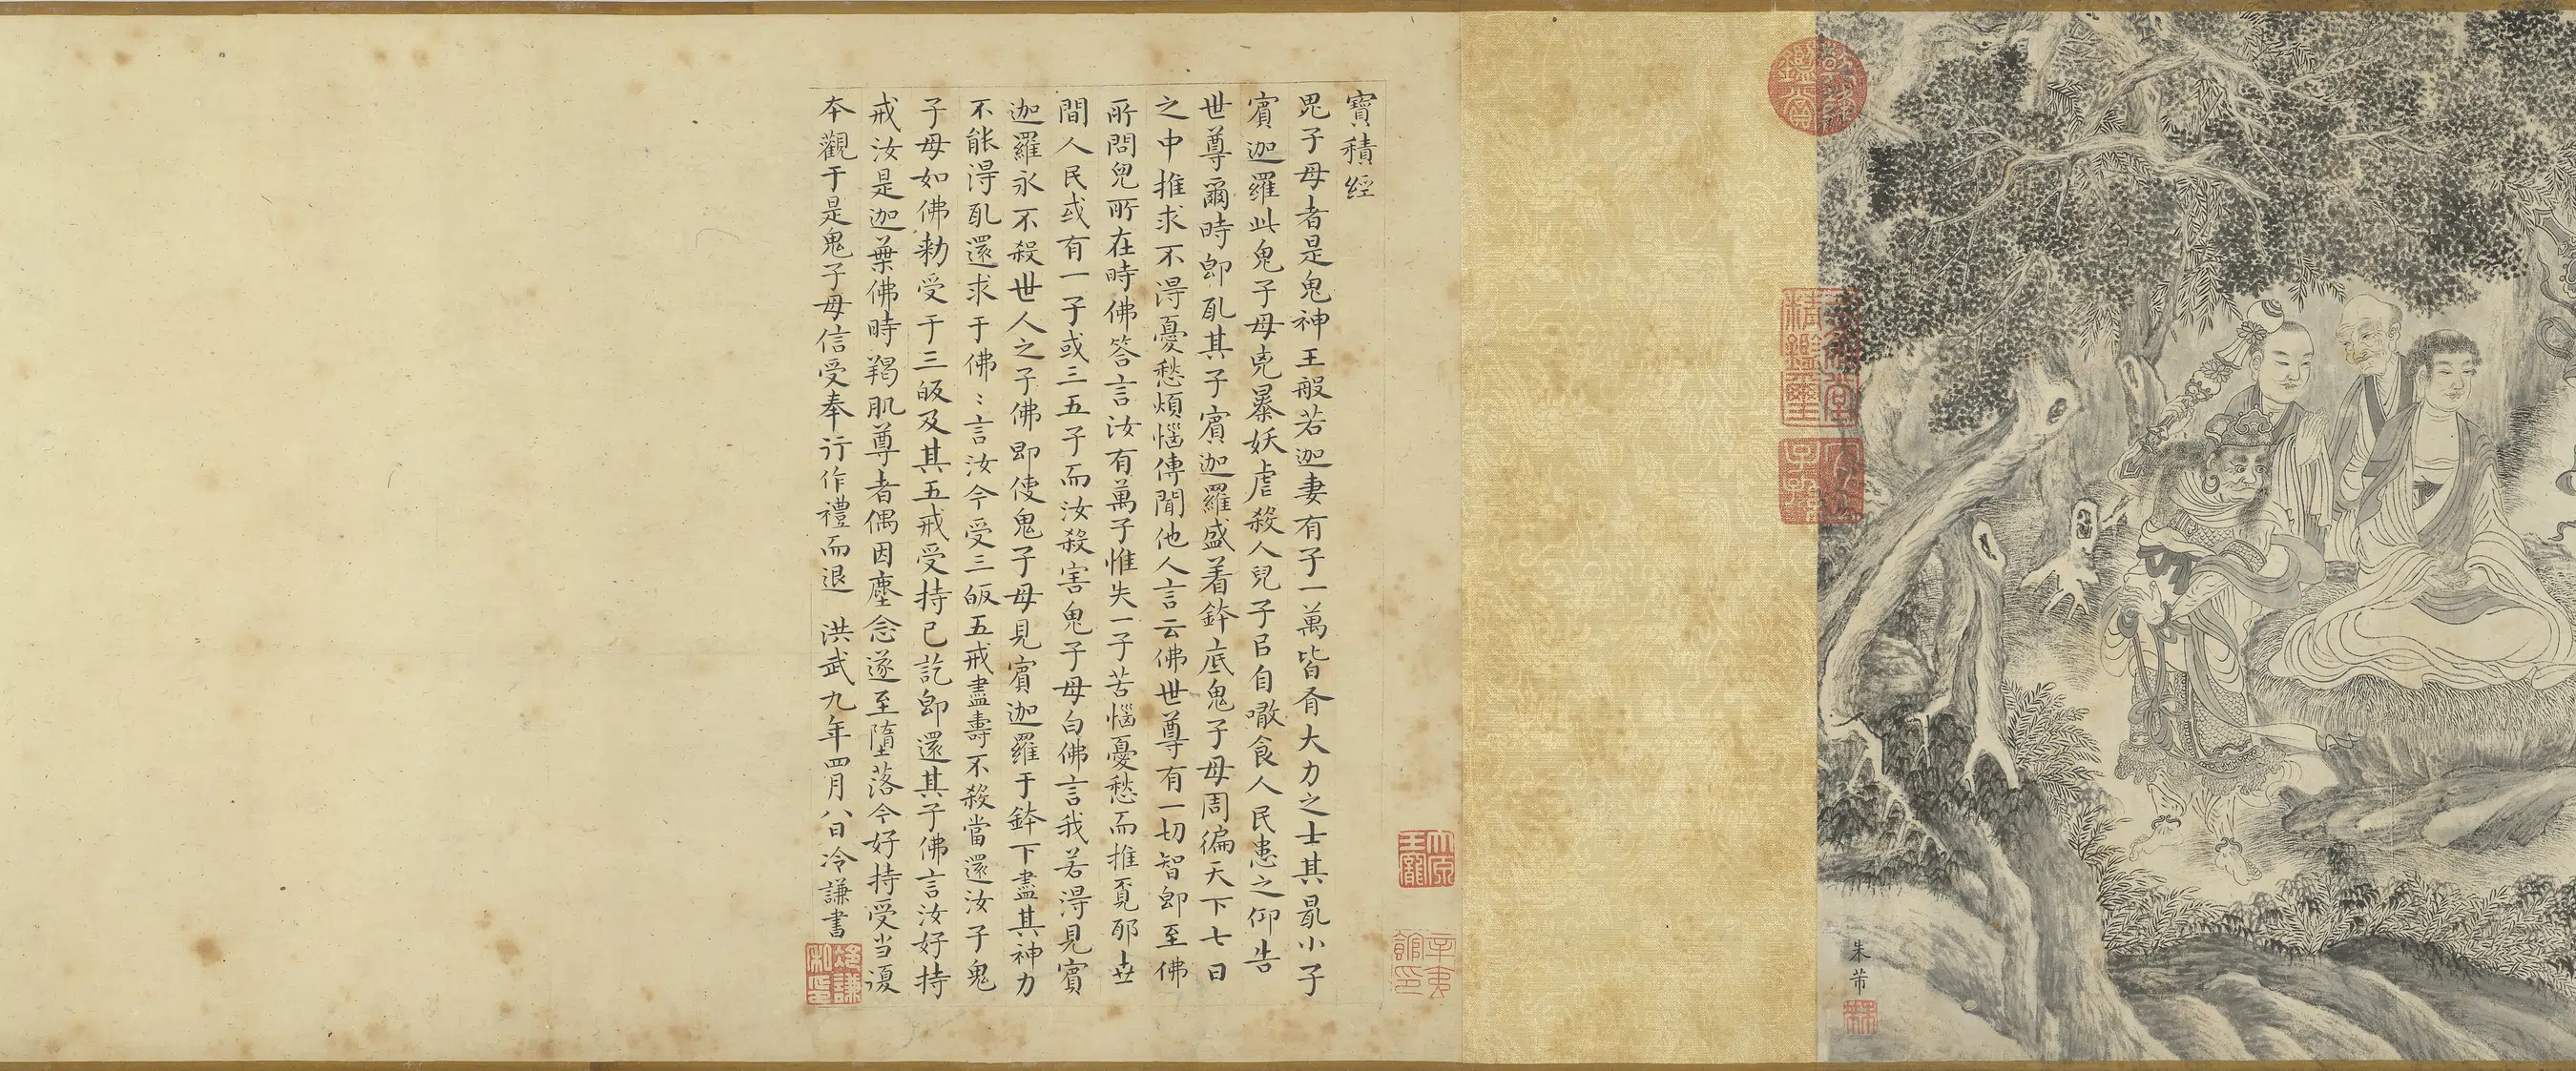 朱芾
寶積經
鬼子母者是鬼神王般若迦妻有子一萬皆有大力之士其最小子
賓迦羅此鬼子母兇暴妖虐殺人兒子㠯自噉食人民患之仰告
世尊爾時即取其子賓迦羅盛着鉢底鬼子母周徧天下七日
之中推求不得憂愁煩惱傳聞他人言云佛世尊有一切智即至佛
所問兒所在時佛答言汝有萬子惟失一子苦惱憂愁而推覓耶世
間人民或有一子或三五子而汝殺害鬼子母白佛言我若得見賓
迦羅永不殺世人之子佛即使鬼子母見賓迦羅于鉢下盡其神力
不能得取還求于佛〻言汝今受三皈五戒盡壽不殺當還汝子鬼
子母如佛勅受于三皈及其五戒受持已訖即還其子佛言汝好持
戒汝是迦葉佛時羯肌尊者偶因塵念遂至墮落今好持受当復
本觀于是鬼子母信受奉行作禮而退 洪武九年四月八日冷謙書